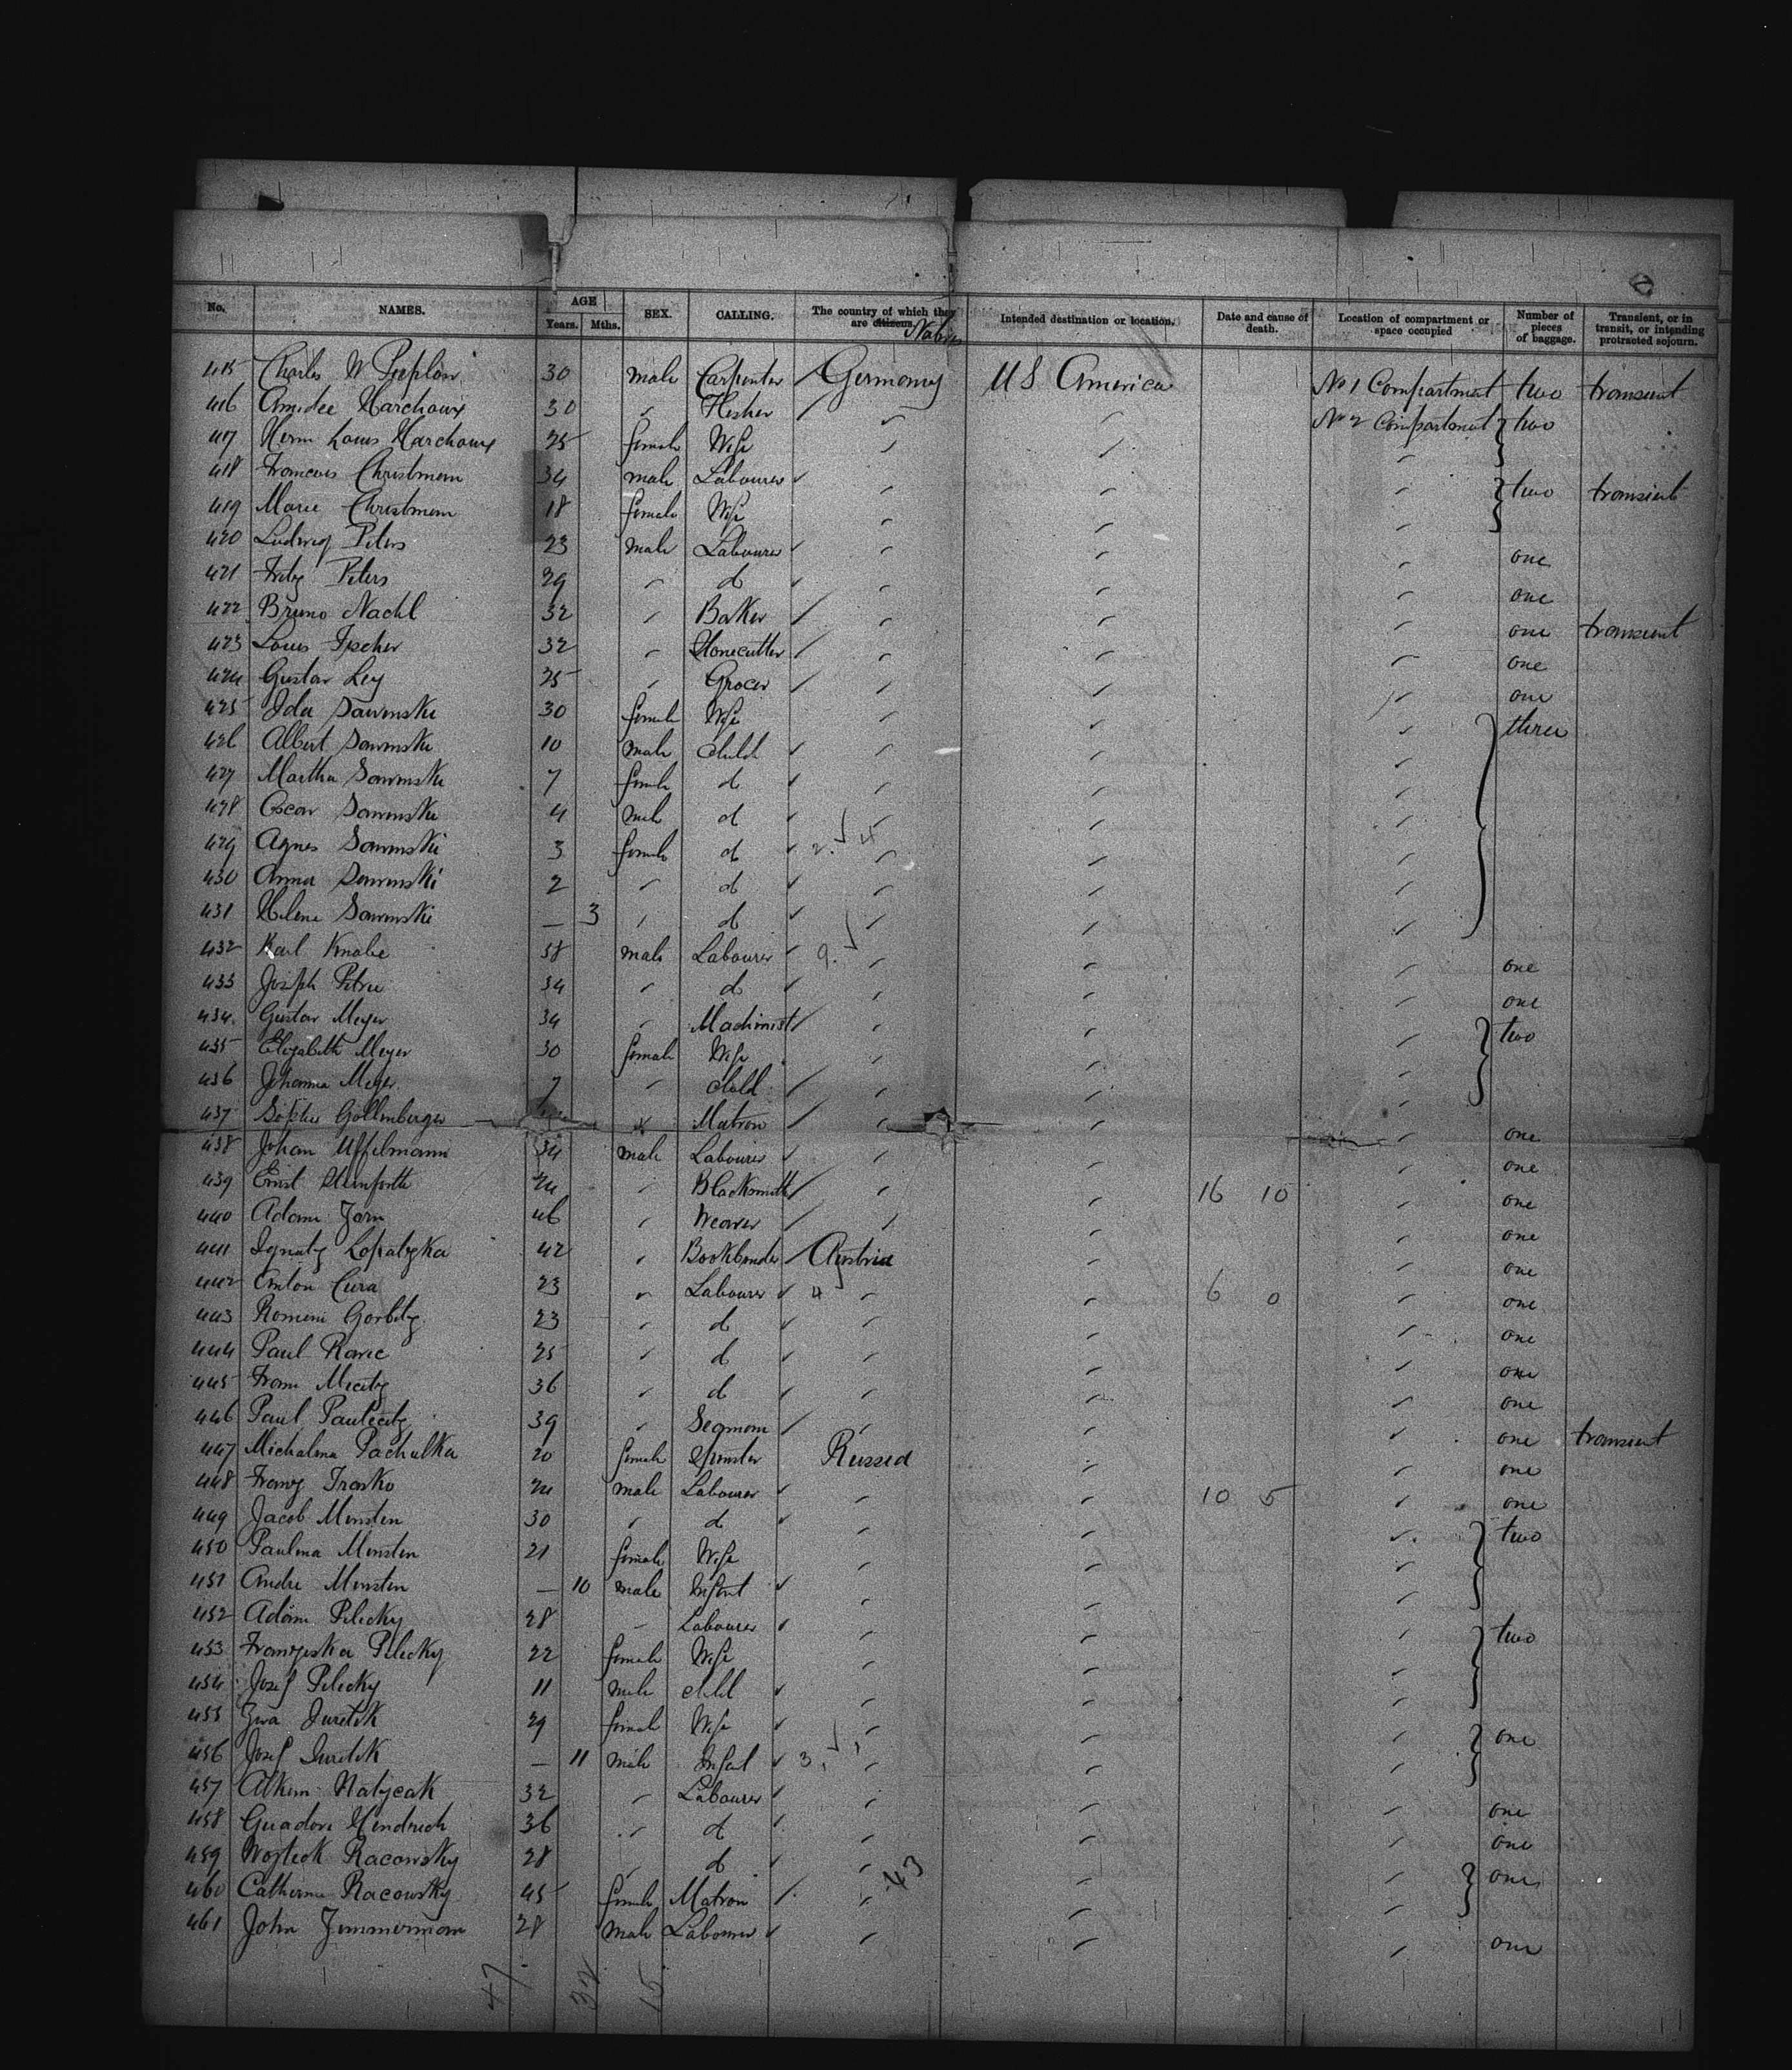 No. NAMES. AGE Years. Mths. SEX. CALLING. The country of which they are citizens. Natives Intended destination or location. Date and cause of death. Location of compartment or space occupied Number of pieces of baggage. Transient, or in transit, or intending protracted sojourn.
415 Charles W 30 male Carpenter Germany U S America No 1 Compartment two transient
416 Amidee Harchoux 30 " Flesher " " No 2 Compartment two
417 Herm Louis Harchoux 25 female Wife " " "
418 Francois Christmem 34 male Labourer " " " two transient
419 Marie Christmem 18 female Wife " " "
420 Ludwig Peters 23 male Labourer " " " one
421 Fritz Peters 29 " d " " " one
422 Bruno Nachl 32 " Baker " " " one transient
423 Louis Fischer 32 " Stonecutter " " " one
424 Gustav Ley 25 " Grocer " " " one
425 Ida Sawinski 30 female Wife " " " three
426 Albert Sawinski 10 male child " " "
427 Martha Sawinski 7 female d " " "
428 Oscar Sawinski 4 male d " " "
429 Agnes Sawinski 3 female d 2 4 " " "
430 Anna Sawinski 2 " d " " "
431 Helene Sawinski — 3 " d " " "
432 Karl Knabe 38 male Labourer 9 " " " one
433 Joseph Petrie 34 " d " " " one
434 Gustav Meyer 34 " Machinist " " " two
435 Elizabeth Meyer 30 female Wife " " "
436 Johanna Meyer 7 " child " " "
437 Sophie Gollenberger " Matron " " " one
438 Johan Uffelmann 34 male Labourer " " " one
439 Ernst 24 " Blacksmith " " 16 10 " one
440 Adam Jorn 46 " Weaver " " " one
441 Ignatz Lopatyka 42 " Bookbinder Austria " " one
442 Anton Cura 23 " Labourer 4 " " 6 0 " one
443 Romeni Gorbitz 23 " d " " " one
444 Paul Ravic 25 " d " " " one
445 Fram Micitz 36 " d " " " one
446 Paul Paulicitz 39 " Seaman " " " one transient
447 Michalina Pachulka 20 female Spinster Russia " " one
448 Franz Trosko 24 male Labourer " " 10 5 " one
449 Jacob Minsten 30 " d " " " two
450 Paulina Minsten 21 female Wife " " "
451 Andre Minsten — 10 male Infant " " "
452 Adam Pilicky 28 " Labourer " " " two
453 Franziska Pilicky 22 female Wife " " "
454 Josef Pilicky 11 male child " " "
455 Ewa Juretik 29 female Wife " " " one
456 Josef Juretik — 11 male Infant 3 " " "
457 Alkim Natycak 32 " Labourer " " " one
458 Guadori Hendrich 36 " d " " " one
459 Wojteck Racowsky 28 " d " " " one
460 Catherina Racowsky 45 female Matron " 43 " "
461 John Zimmerman 28 male Labourer " " " one
47 32 15